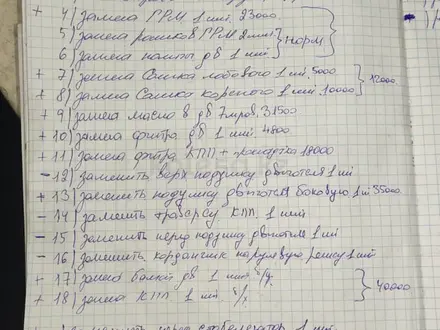 + 4) замена ГРМ 1 шт. 23000
5) замена роликов ГРМ 2 шт } норм
6) замена помпы дв 1 шт
+ 7) замена Сальника лобового 1 шт, 5000 } 12000
+ 8) замена Сальника коренного 1 шт 10000
+ 9) замена масло в дв 7 литров, 31500
+ 10) замена фильтра дв 1 шт 4800
+ 11) замена фильтра КПП + прокладка 18000
- 12) заменить верх подушку двигателя 1 шт
+ 13) заменить подушку двигателя боковую 1 шт 35000
- 14) заменить траверсу КПП. 1 шт
- 15) заменить перед подушку двигателя 1 шт
- 16) заменить карданчик на рулевую рейку 1 шт
+ 17) замена дв 1 шт б/у } 40000
+ 18) замена КПП 1 шт б/у
перед стабилизатор 1 шт